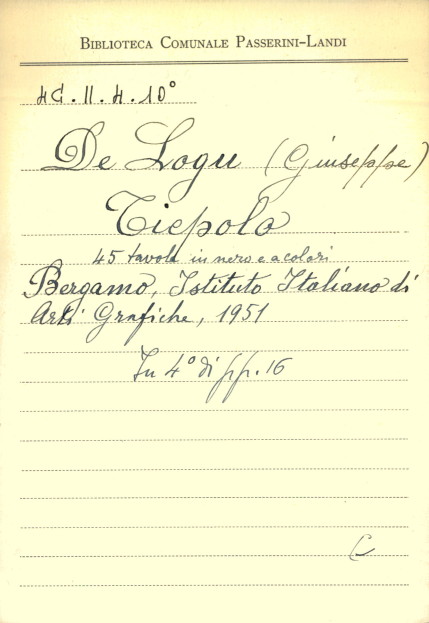 BIBLIOTECA COMUNALE PASSERINI-LANDI
4G.II.4.10°
De Logu (Giuseppe)
Tiepolo
45 tavole in nero e a colori
Bergamo, Istituto Italiano di
Arti Grafiche, 1951
In 4° di pp. 16
C